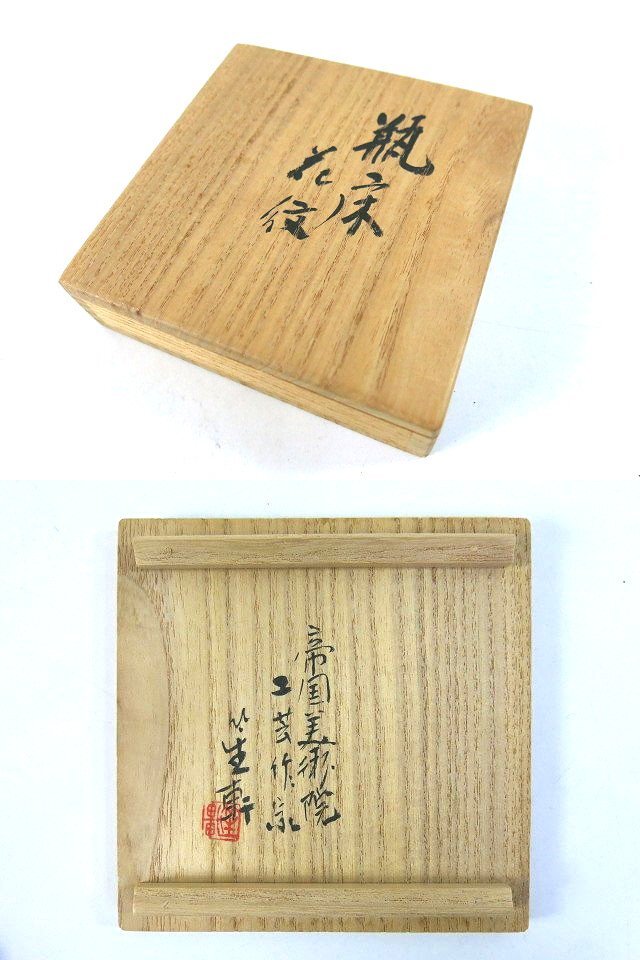 瓶床
花紋
帝国美術院
工芸作家
笙軒